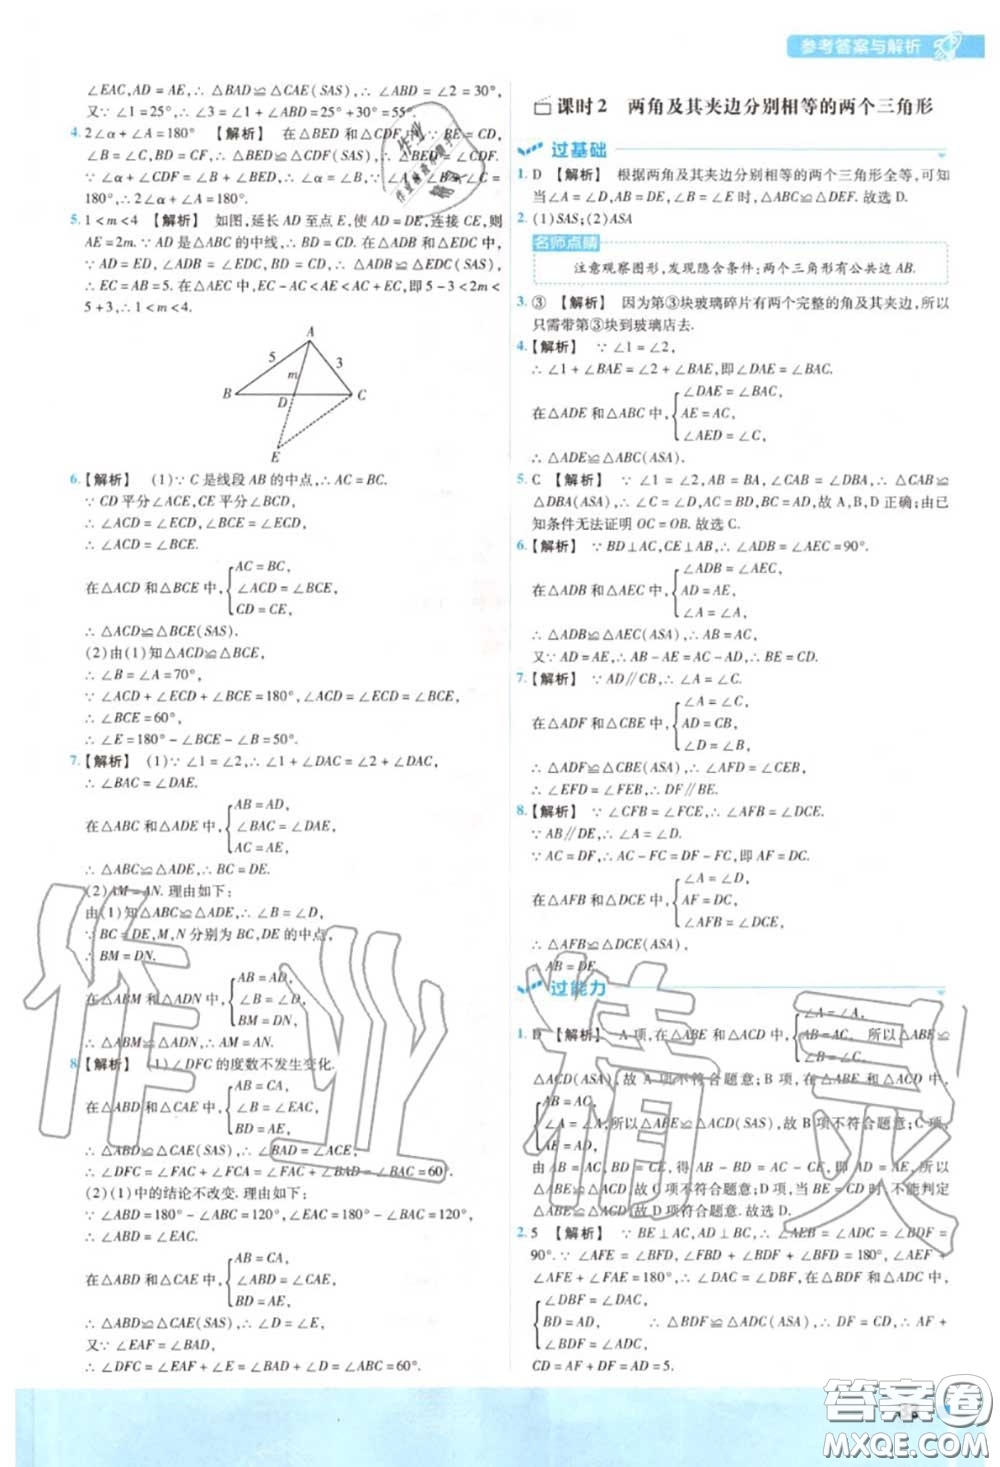 参考答案与解析
∠EAC,AD=AE,∴△BAD≌△CAE(SAS),∴∠ABD=∠2=30°,
又∵∠1=25°,∴∠3=∠1+∠ABD=25°+30°=55°.
4. 2∠α+∠A=180° 【解析】 在△BED和△CDF中,∵BE=CD,
∠B=∠C,BD=CF,∴△BED≌△CDF(SAS),∴∠BED=∠CDF.
180°,∴2∠α+∠A=180°.
5. 1<m<4 【解析】 如图,延长AD至点E,使AD=DE,连接CE,则
AE=2m.∵AD是△ABC的中线,∴BD=CD.在△ADB和△EDC中,
∵AD=DE,∠ADB=∠EDC,BD=CD,∴△ADB≌△EDC(SAS),
∴EC=AB=5.在△AEC中,EC-AC<AE<AC+EC,即5-3<2m<
5+3,∴1<m<4.
A
5
3
m
B
D
C
E
6.【解析】 (1)∵C是线段AB的中点,∴AC=BC.
∵CD平分∠ACE,CE平分∠BCD,
∴∠ACD=∠ECD,∠BCE=∠ECD,
∴∠ACD=∠BCE.
在△ACD和△BCE中,
AC=BC,
∠ACD=∠BCE,
CD=CE,
∴△ACD≌△BCE(SAS).
(2)由(1)知△ACD≌△BCE,
∴∠B=∠A=70°,
∵∠ACD+∠ECD+∠BCE=180°,∠ACD=∠ECD=∠BCE,
∴∠BCE=60°,
∴∠E=180°-∠BCE-∠B=50°.
7.【解析】 (1)∵∠1=∠2,∴∠1+∠DAC=∠2+∠DAC,
∴∠BAC=∠DAE.
在△ABC和△ADE中,
AB=AD,
∠BAC=∠DAE,
AC=AE,
∴△ABC≌△ADE,∴BC=DE.
(2)AM=AN.理由如下:
由(1)知△ABC≌△ADE,∴∠B=∠D,
∵BC=DE,M,N分别为BC,DE的中点,
∴BM=DN.
在△ABM和△ADN中,
AB=AD,
∠B=∠D,
BM=DN,
∴△ABM≌△ADN,∴AM=AN.
8.【解析】 (1)∠DFC的度数不发生变化.
在△ABD和△CAE中,
AB=CA,
∠ABD=∠CAE,
BD=AE,
∴△ABD≌△CAE(SAS),∴∠BAD=∠ACE,
∴∠DFC=∠FAC+∠ACE=∠FAC+∠BAD=∠BAC=60°.
(2)(1)中的结论不改变.理由如下:
∵∠ABD=180°-∠ABC=120°,∠EAC=180°-∠BAC=120°,
∴∠ABD=∠EAC.
在△ABD和△CAE中,
AB=CA,
∠ABD=∠CAE,
BD=AE,
∴△ABD≌△CAE(SAS),∴∠D=∠E,
又∵∠EAF=∠BAD,
∴∠DFC=∠EAF+∠E=∠BAD+∠D=∠ABC=60°.
课时2 两角及其夹边分别相等的两个三角形
过基础
1. D 【解析】 根据两角及其夹边分别相等的两个三角形全等,可知
当∠A=∠D,AB=DE,∠B=∠E时,△ABC≌△DEF.故选D.
2. (1)SAS;(2)ASA
名师点睛
注意观察图形,发现隐含条件:两个三角形有公共边AB.
3. ③ 【解析】 因为第③块玻璃碎片有两个完整的角及其夹边,所以
只需带第③块到玻璃店去.
4.【解析】 ∵∠1=∠2,
∴∠1+∠BAE=∠2+∠BAE,即∠DAE=∠BAC.
在△ADE和△ABC中,
∠DAE=∠BAC,
AE=AC,
∠AED=∠C,
∴△ADE≌△ABC(ASA).
5. C 【解析】 ∵∠1=∠2,AB=BA,∠CAB=∠DBA,∴△CAB≌
△DBA(ASA),∴∠C=∠D,AC=BD,BC=AD,故A,B,D正确;由已
知条件无法证明OC=OB.故选C.
6.【解析】 ∵BD⊥AC,CE⊥AB,∴∠ADB=∠AEC=90°.
在△ADB和△AEC中,
∠ADB=∠AEC,
AD=AE,
∠A=∠A,
∴△ADB≌△AEC(ASA),∴AB=AC,
又∵AD=AE,∴AB-AE=AC-AD,∴BE=CD.
7.【解析】 ∵AD∥CB,∴∠A=∠C.
在△ADF和△CBE中,
∠A=∠C,
AD=CB,
∠D=∠B,
∴△ADF≌△CBE(ASA),∴∠AFD=∠CEB,
∴∠EFD=∠FEB,∴DF∥BE.
8.【解析】 ∵∠CFB=∠FCE,∴∠AFB=∠DCE.
∵AB∥DE,∴∠A=∠D.
∵AC=DF,∴AC-FC=DF-FC,即AF=DC.
在△AFB和△DCE中,
∠A=∠D,
AF=DC,
∠AFB=∠DCE,
∴△AFB≌△DCE(ASA),
∴AB=DE.
过能力
1. D 【解析】 A项,在△ABE和△ACD中,
∠A=∠A,
AB=AC,
∠B=∠C,
所以△ABE≌
△ACD(ASA),故A项不符合题意;B项,在△ABE和△ACD中,
AB=AC,
∠A=∠A,
AE=AD,
所以△ABE≌△ACD(SAS),故B项不符合题意;C项,
由AB=AC,BD=CE,得AB-BD=AC-CE,即AD=AE,所以
△ABE≌△ACD(SAS),故C项不符合题意;D项,当BE=CD时,不能判定
△ABE与△ACD全等,故D项符合题意.故选D.
2. 5 【解析】 ∵BE⊥AC,AD⊥BC,∴∠AEF=∠ADC=∠BDF=
90°.∵∠AFE=∠BFD,∠FBD+∠BDF+∠BFD=180°,∠AEF
+∠AFE+∠FAE=180°,∴∠DAC=∠DBF,在△BDF和△ADC中,
∠DBF=∠DAC,
BD=AD,
∠BDF=∠ADC,
∴△BDF≌△ADC(ASA),∴DF=CD,∴AF+
CD=AF+DF=AD=5.
作业精灵
答案圈
MXQE.COM